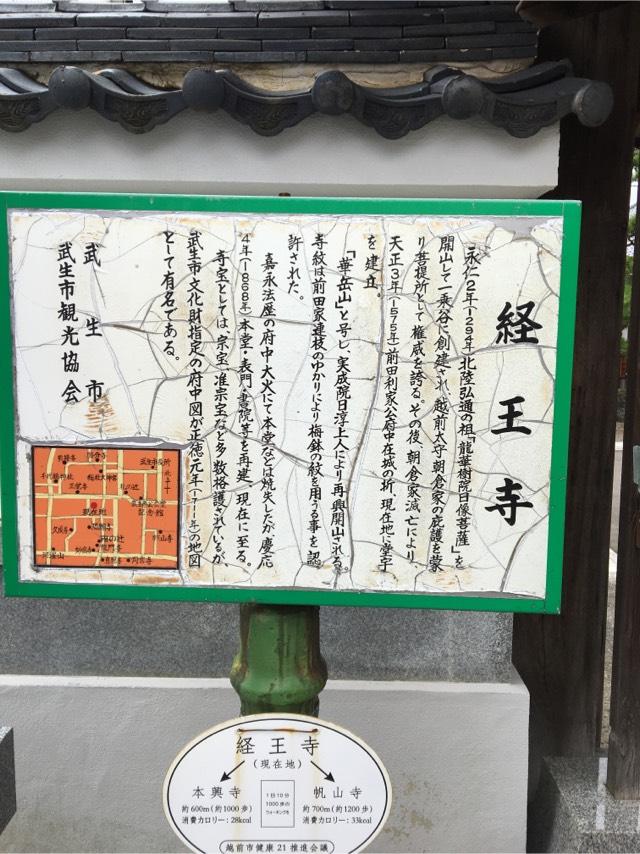 経王寺
永仁2年(1294年)北陸弘通の祖「龍華樹院日像菩薩」を
開山して一乗谷に創建され、越前太守朝倉家の庇護を蒙
り菩提所として権威を誇る。その後、朝倉家滅亡により、
天正3年(1575年)前田利家公府中在城の折、現在地に堂宇
を建立。
「華岳山」と号し、実成院日淳上人により再興開山される。
寺紋は前田家連枝のゆかりにより梅鉢の紋を用うる事を認
許された。
嘉永法歴の府中大火にて本堂などは焼失したが、慶応
4年(1868年)本堂・表門・書院等を再建、現在に至る。
寺宝としては、宗宝、准宗宝など多数格護されているが、
武生市文化財指定の府中図が正徳元年(1711年)の地図
として有名である。
武生市
武生市観光協会
武生市役所
現在地
記念館
帆山寺
経王寺
(現在地)
本興寺
約600m(約1000歩)
消費カロリー:28kcal
1日10分
1000歩の
ウォーキングを
帆山寺
約700m(約1200歩)
消費カロリー:33kcal
越前市健康21推進会議